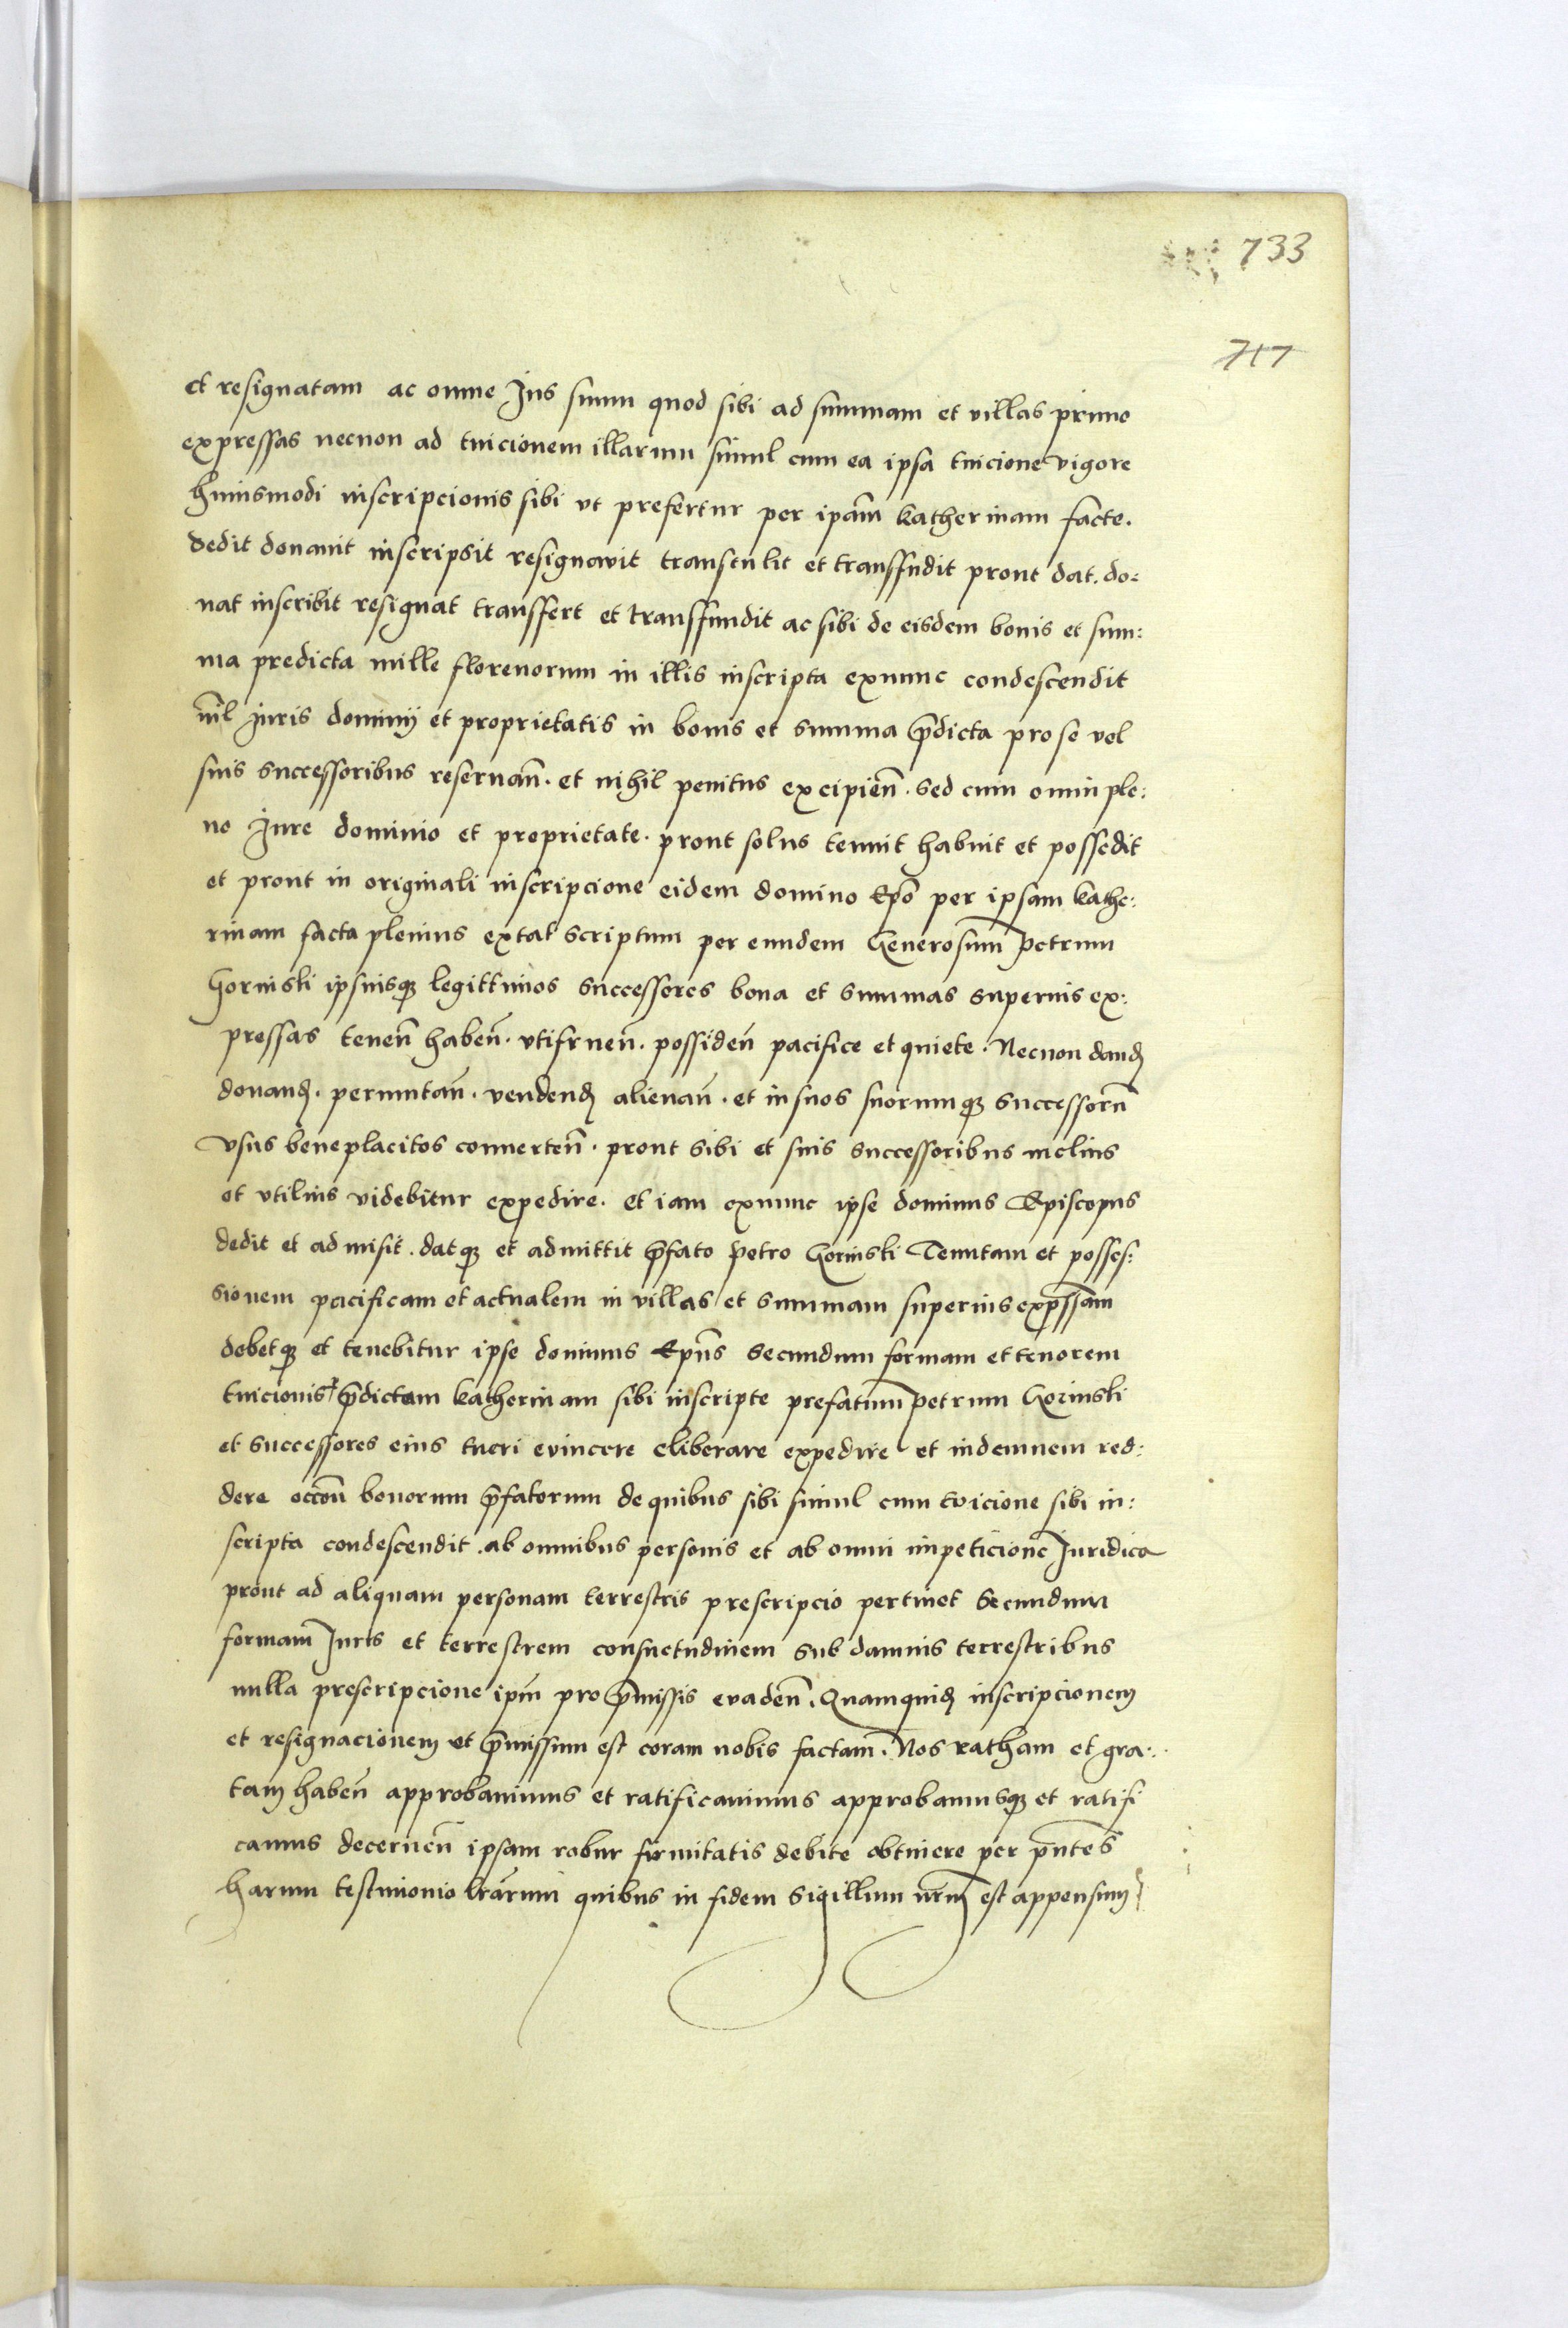 733
717
et resignatam ac omne Jus suum quod sibi ad summam et villas primo
expressas necnon ad tuicionem illarum simul cum ea ipsa tuicione vigore
huiusmodi inscripcionis sibi vt prefertur per ipãm katherinam facte.
dedit donauit inscripsit resignavit transtulit et transffudit prout dat. do:
nat inscribit resignat transfert et transffundit ac sibi de eisdem bonis et sum:
ma predicta mille florenorum in illis inscripta exnunc condescendit
nĩl Juris dominij et proprietatis in bonis et summa p̃dicta pro se vel
suis successoribus reseruañ. et nihil penitus excipieñ. sed cum omni ple:
no Jure dominio et proprietate. prout solus tenuit habuit et possedit
et prout in originali inscripcione eidem domino Ep̃o per ipsam kathe:
rinam facta plenius extat scriptum per eundem Generosum petrum
Gorinski ipsiusqꝫ legittimos successores bona et summas superius ex:
pressas teneñ habeñ. vtifrueñ. possideñ pacifice et quiete. Necnon danđ
donanđ. permutañ. vendenđ alienañ. et in suos suorumqꝫ successorũ
vsus beneplacitos conuerteñ. prout sibi et suis successoribus melius
et vtilius videbitur expedire. et iam exnunc ipse dominus Episcopus
dedit et admisit. datqꝫ et admittit p̃fato petro Gorinski Tenutam et posses:
sionem pacificam et actualem in villas et summam superius exp̃ssam
debetqꝫ et tenebitur ipse dominus Ep̃us secundum formam et tenorem
tuicionis p̃dictam katherinam sibi inscripte prefatum petrum Gorinski
et successores eius tueri evincere eliberare expedire et indemnem red:
dere occõn bonorum p̃fatorum de quibus sibi simul cum tvicione sibi in:
scripta condescendit. ab omnibus personis et ab omni impeticione Juridica
prout ad aliquam personam terrestris prescripcio pertinet Secundum
formam Juris et terrestrem consuetudinem sub damnis terrestribus
nulla prescripcione ip̃m pro p̃missis evadeñ. Quamquiđ inscripcionem
et resignacionem vt p̃missum est coram nobis factam. Nos ratham et gra:
tam habeñ approbauimus et ratificauimus approbamusqꝫ et ratifi
camus decerneñ ipsam robur firmitatis debite obtinere per p̃ntes
harum testimonio lr̃arum quibus in fidem Sigillum nr̃m est appensum